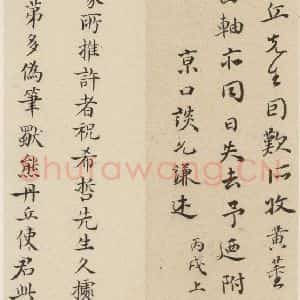 丘先生囙歎所收黃荃
軸亦同日失去予廼附
京口談允謙述
丙戌上
所推許者祝希哲先生久擅
第多偽筆熊丹丘使君此
Shufawang.CN